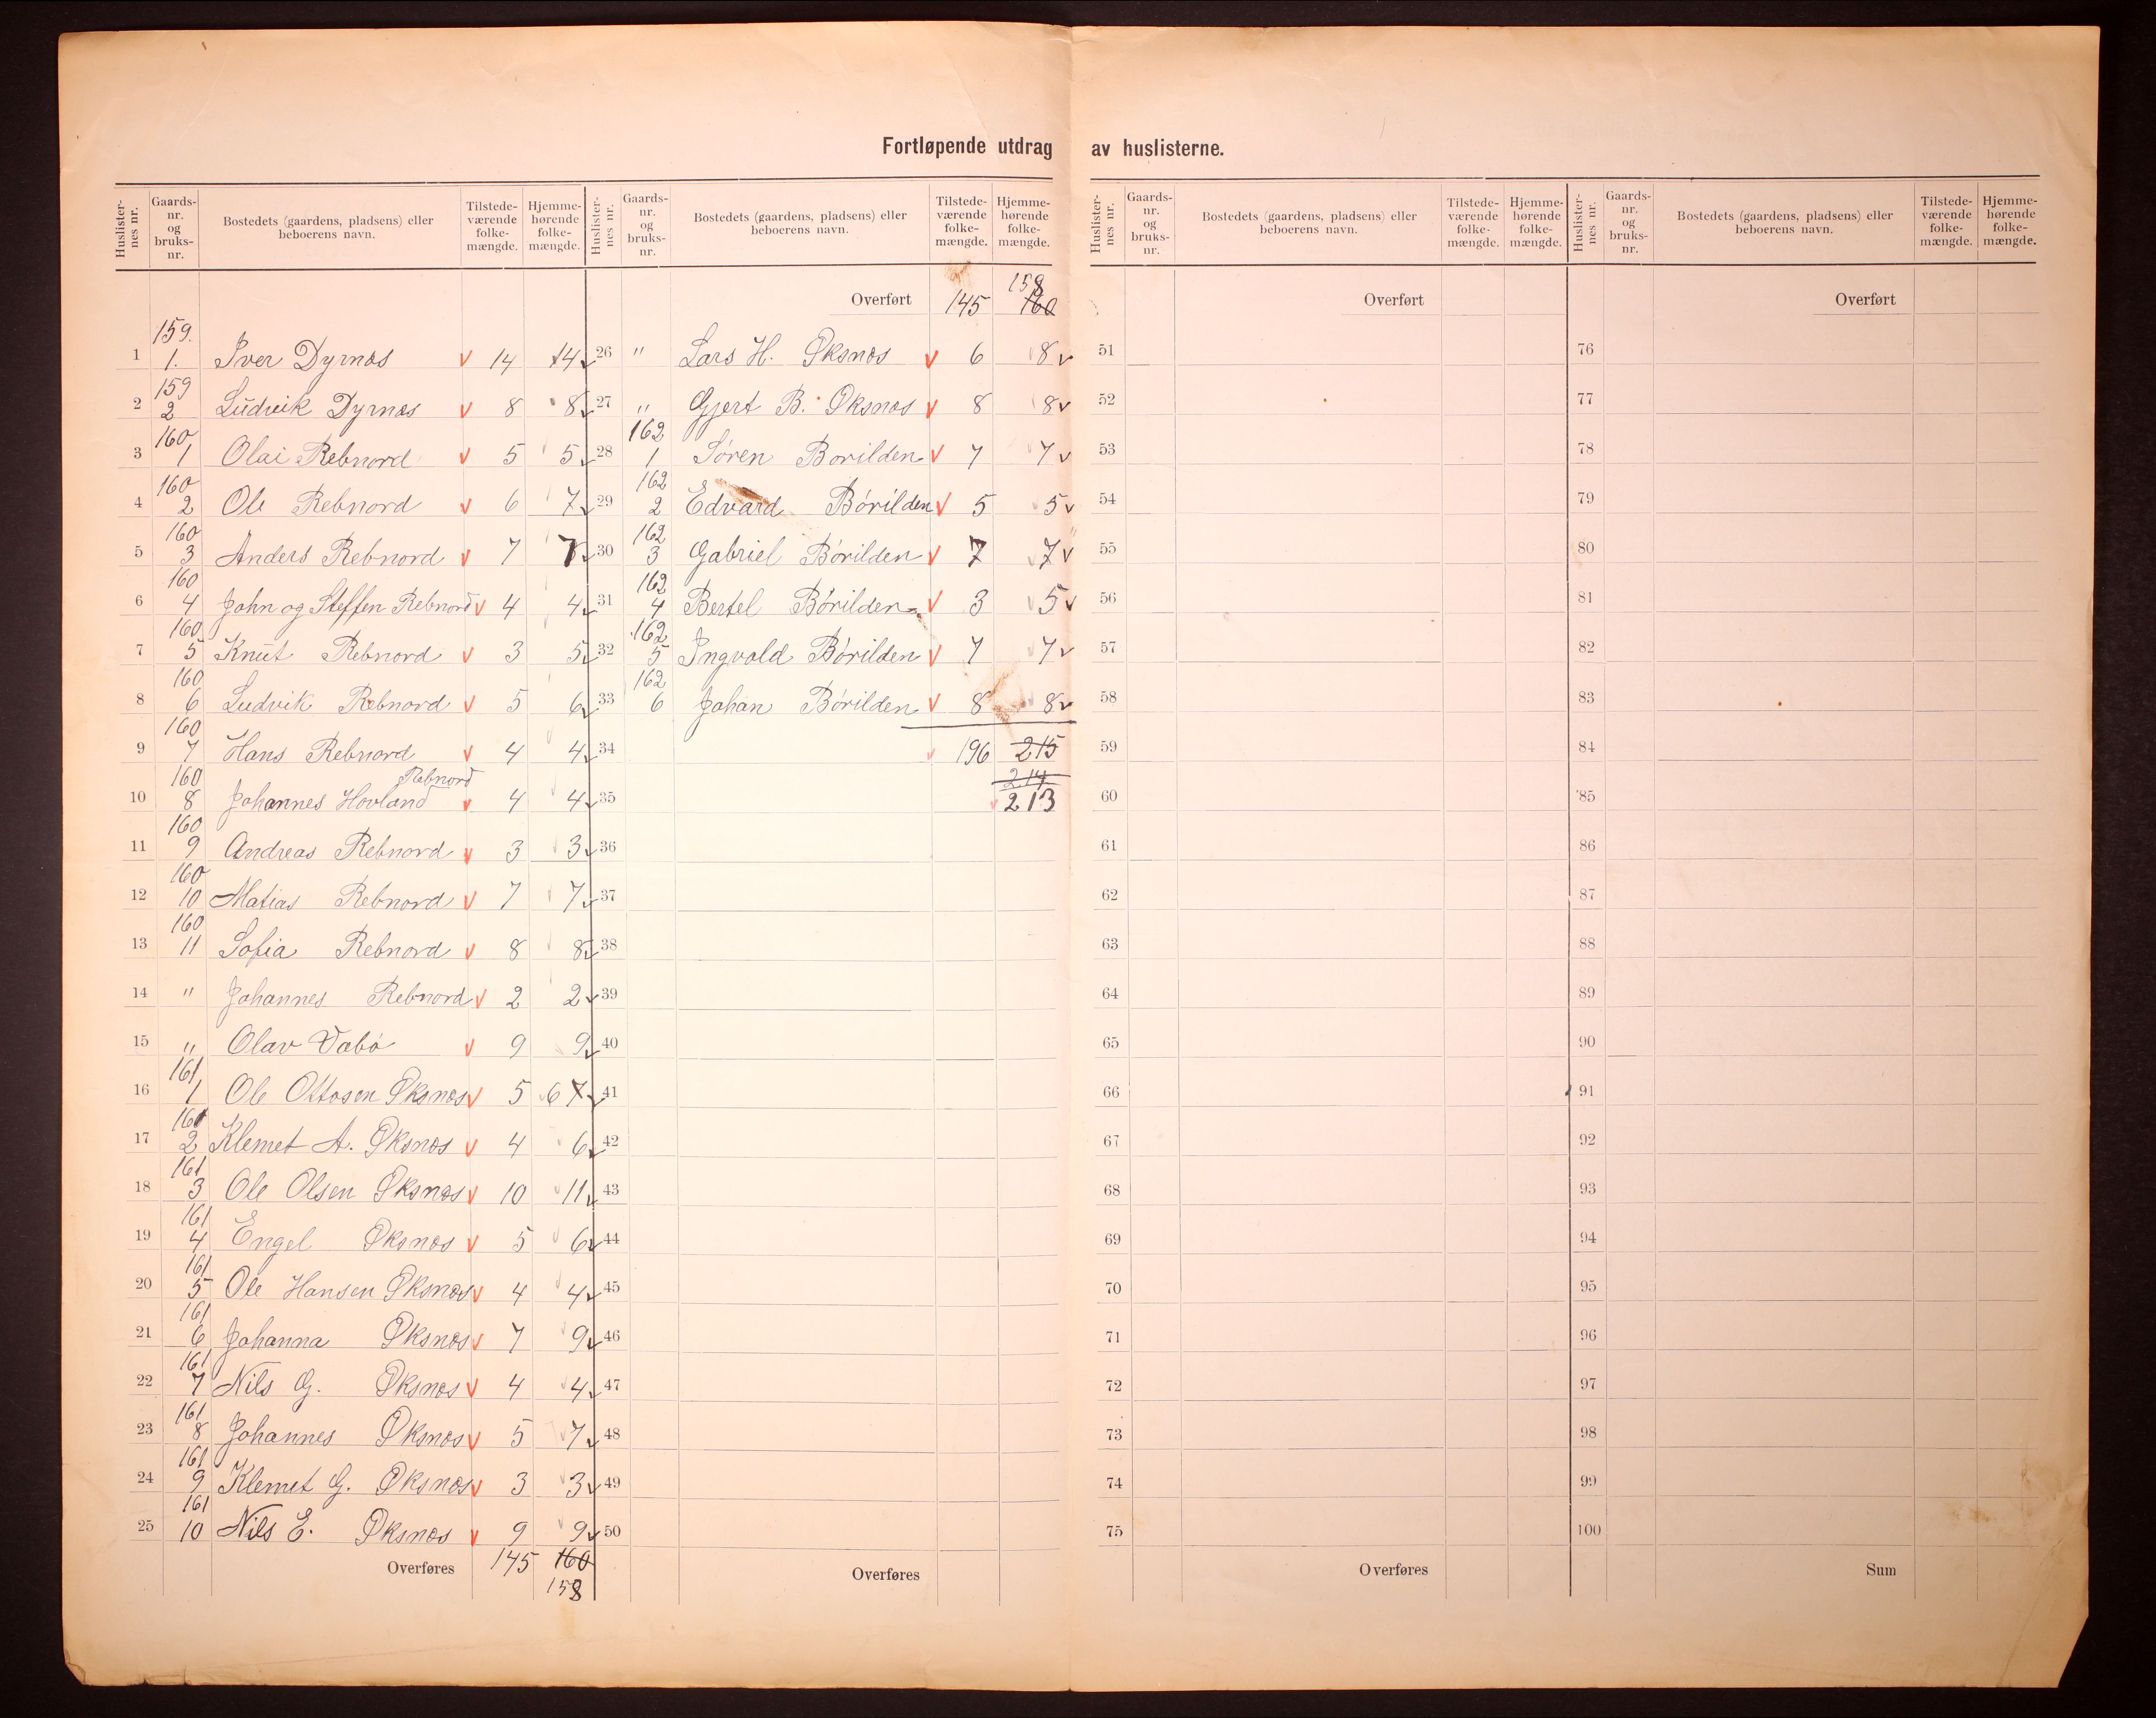 Fortløpende utdrag av huslisterne.
Huslister-nes nr. | Gaards-nr. og bruks-nr. | Bostedets (gaardens, pladsens) eller beboerens navn. | Tilstede-værende folke-mængde. | Hjemme-hørende folke-mængde.
1 | 159. 1. | Iver Dyrnæs | v 14 | 14 v
2 | 159 2 | Ludvik Dyrnæs | v 8 | 8 v
3 | 160 1 | Olai Rebnord | v 5 | 5 v
4 | 160 2 | Ole Rebnord | v 6 | 7 v
5 | 160 3 | Anders Rebnord | v 7 | 7 v
6 | 160 4 | John og Steffen Rebnord | v 4 | 4 v
7 | 160 5 | Knut Rebnord | v 3 | 5 v
8 | 160 6 | Ludvik Rebnord | v 5 | 6 v
9 | 160 7 | Hans Rebnord | v 4 | 4 v
10 | 160 8 | Johannes Hovland Rebnord | v 4 | 4 v
11 | 160 9 | Andreas Rebnord | v 3 | 3 v
12 | 160 10 | Matias Rebnord | v 7 | 7 v
13 | 160 11 | Sofia Rebnord | v 8 | 8 v
14 | " | Johannes Rebnord | v 2 | 2 v
15 | " | Olav Vabø | v 9 | 9 v
16 | 161 1 | Ole Ottosen Øksnæs | v 5 | 6 7 v
17 | 161 2 | Klemet A. Øksnæs | v 4 | 6 v
18 | 161 3 | Ole Olsen Øksnæs | v 10 | 11 v
19 | 161 4 | Engel Øksnæs | v 5 | 6 v
20 | 161 5 | Ole Hansen Øksnæs | v 4 | 4 v
21 | 161 6 | Johanna Øksnæs | v 7 | 9 v
22 | 161 7 | Nils G. Øksnæs | v 4 | 4 v
23 | 161 8 | Johannes Øksnæs | v 5 | 7 v
24 | 161 9 | Klemet G. Øksnæs | v 3 | 3 v
25 | 161 10 | Nils E. Øksnæs | v 9 | 9 v
Overføres | 145 | 160
158
Huslister-nes nr. | Gaards-nr. og bruks-nr. | Bostedets (gaardens, pladsens) eller beboerens navn. | Tilstede-værende folke-mængde. | Hjemme-hørende folke-mængde.
158
Overført | 145 | 160
26 | " | Lars H. Øksnæs | v 6 | 8 v
27 | " | Gjert B. Øksnæs | v 8 | 8 v
28 | 162 1 | Søren Børilden | v 7 | 7 v
29 | 162 2 | Edvard Børilden | v 5 | 5 v
30 | 162 3 | Gabriel Børilden | v 7 | 7 v
31 | 162 4 | Bertel Børilden | v 3 | 5 v
32 | 162 5 | Ingvald Børilden | v 7 | 7 v
33 | 162 6 | Johan Børilden | v 8 | 8 v
34 | v 196 | 215
214
35 | v 213
36
37
38
39
40
41
42
43
44
45
46
47
48
49
50
Overføres
Huslister-nes nr. | Gaards-nr. og bruks-nr. | Bostedets (gaardens, pladsens) eller beboerens navn. | Tilstede-værende folke-mængde. | Hjemme-hørende folke-mængde.
Overført
51
52
53
54
55
56
57
58
59
60
61
62
63
64
65
66
67
68
69
70
71
72
73
74
75
Overføres
Huslister-nes nr. | Gaards-nr. og bruks-nr. | Bostedets (gaardens, pladsens) eller beboerens navn. | Tilstede-værende folke-mængde. | Hjemme-hørende folke-mængde.
Overført
76
77
78
79
80
81
82
83
84
85
86
87
88
89
90
91
92
93
94
95
96
97
98
99
100
Sum